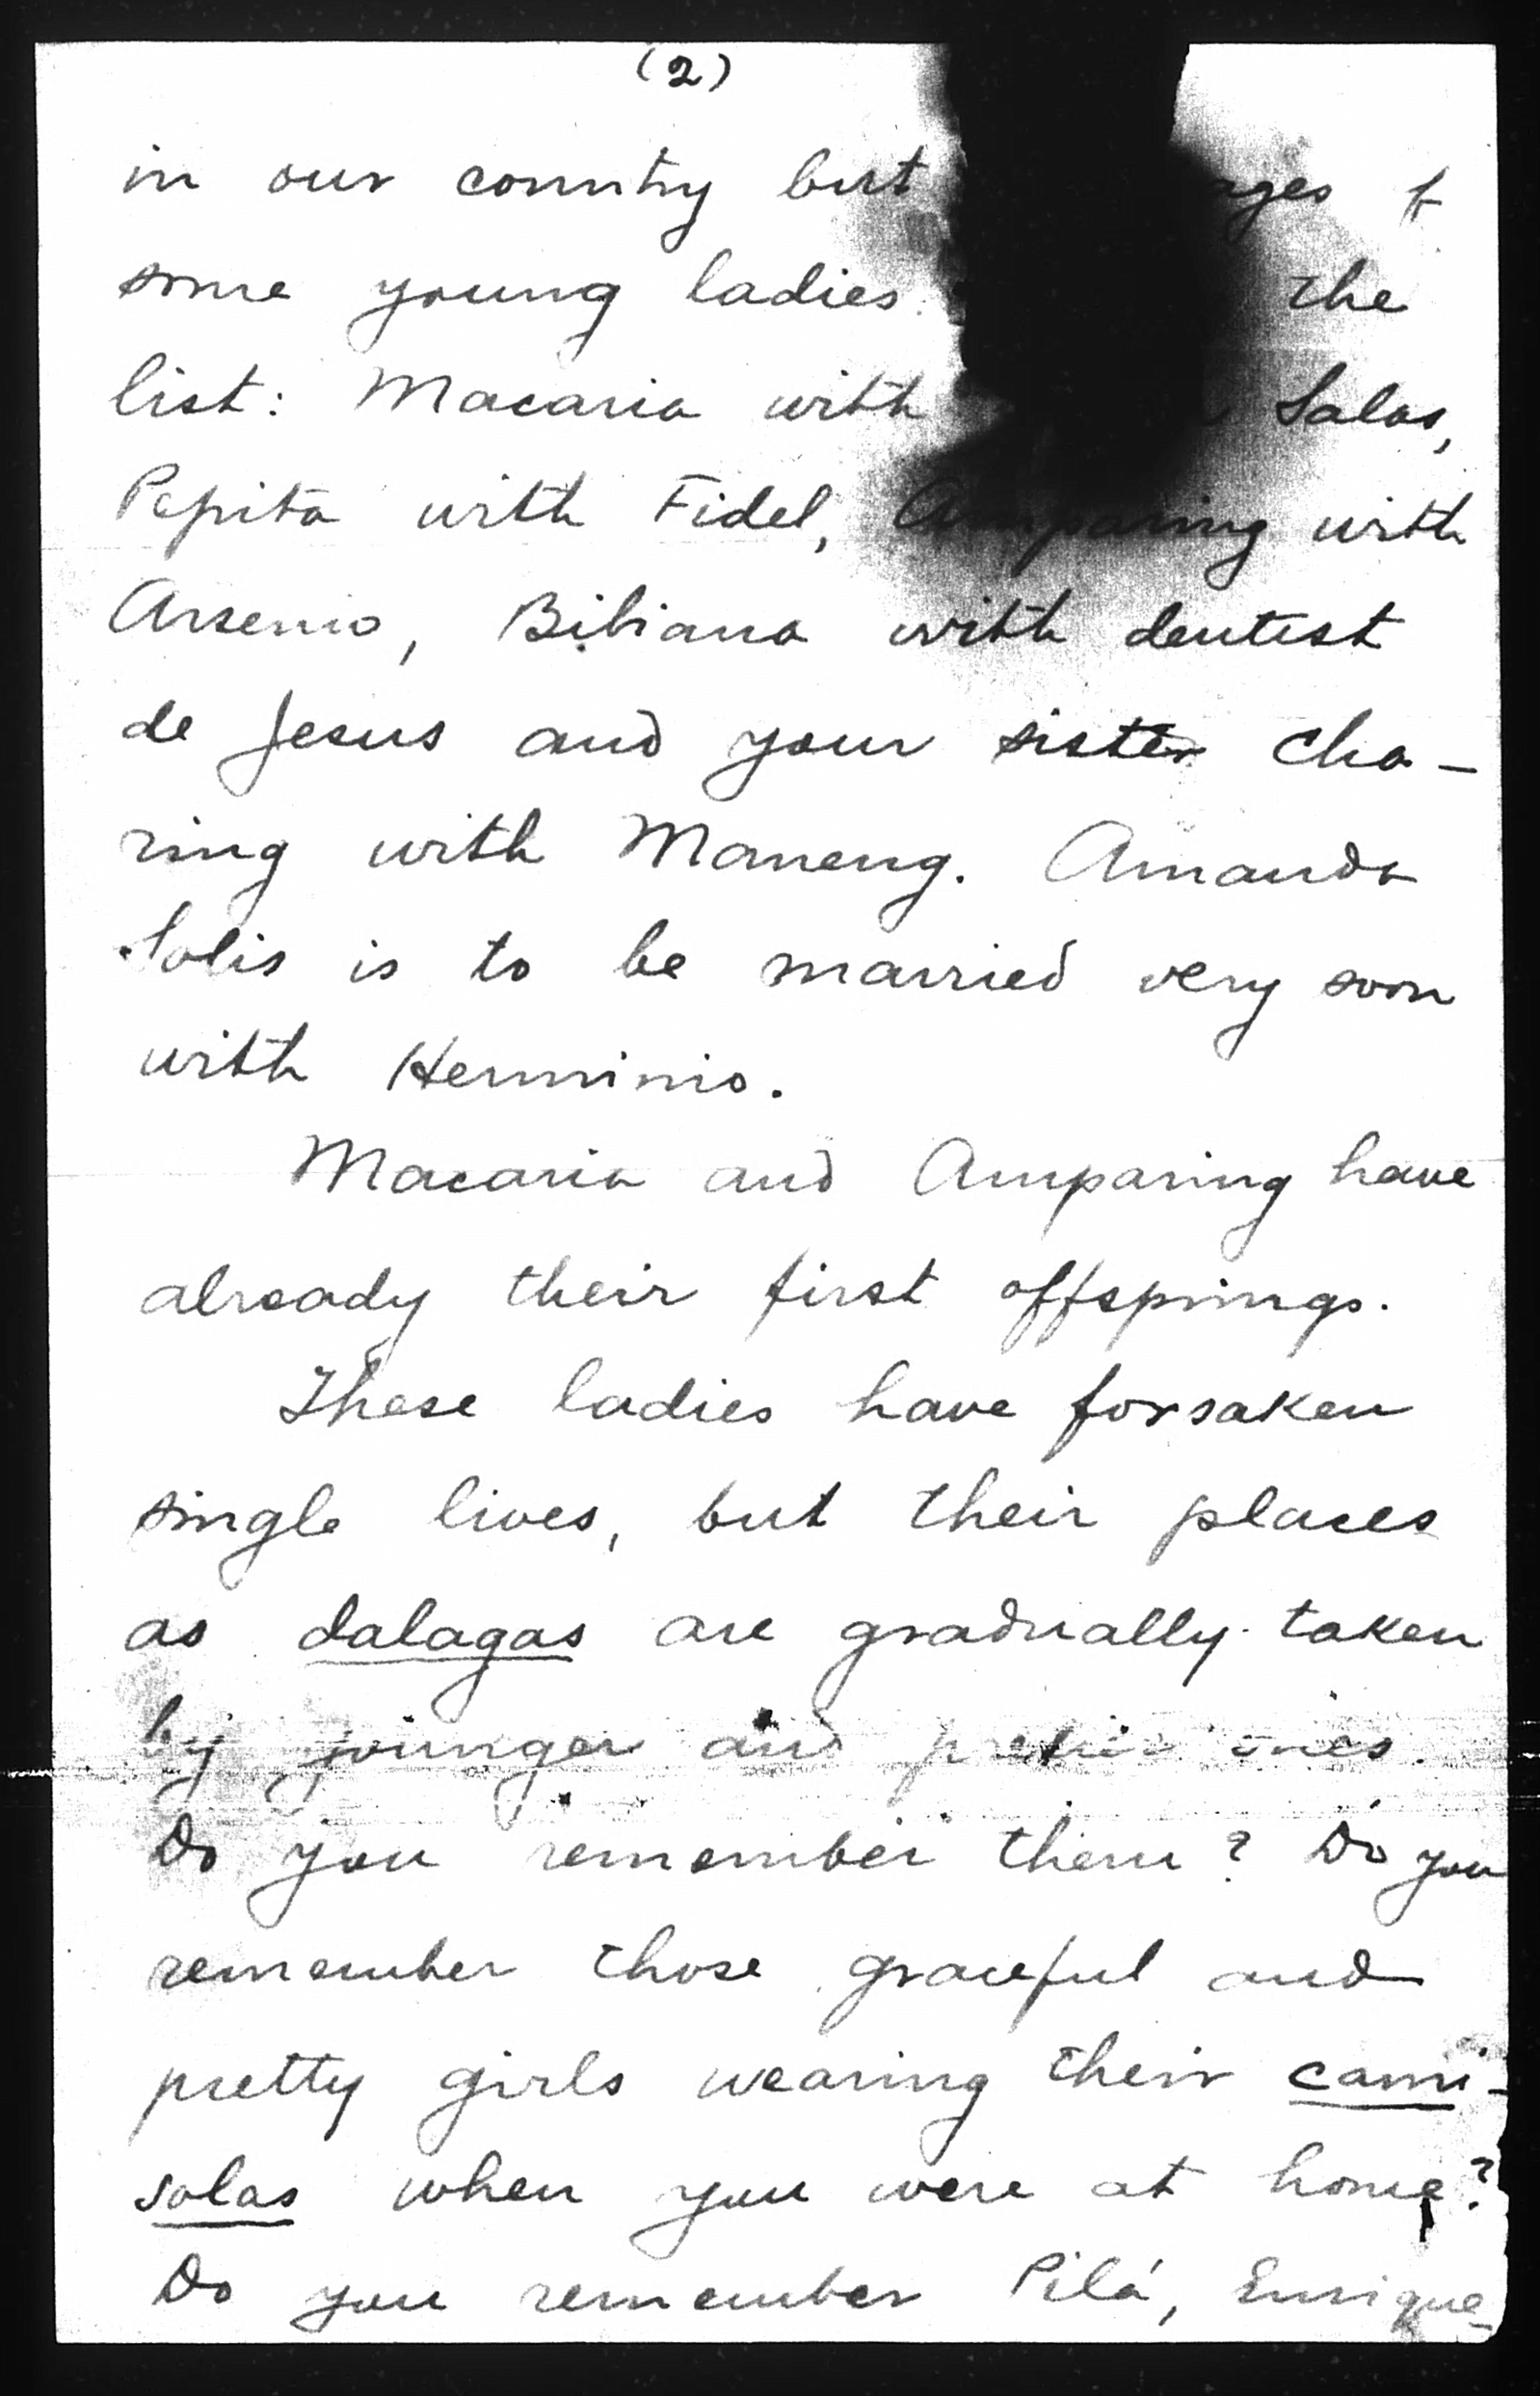 (2)
in our country but
some young ladies. the
list: Macaria with Salas,
Pepita with Fidel, Amparing with
Arsenio, Bibiana with dentist
de Jesus and your sister Cha-
ring with Maneng. Amanda
Solis is to be married very soon
with Herminio.
Macaria and Amparing have
already their first offsprings.
These ladies have forsaken
single lives, but their places
as dalagas are gradually taken
by younger and ones.
Do you remember them? Do you
remember those graceful and
pretty girls wearing their cami-
solas when you were at home?
Do you remember Pilá, Enrique-